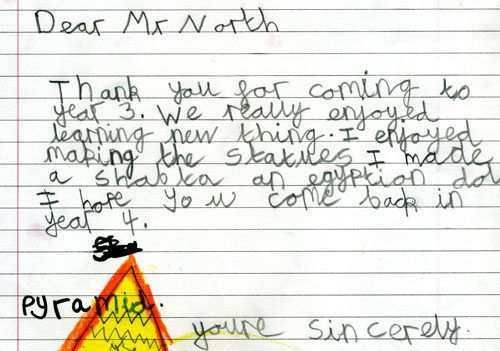 Dear Mr North
Thank you for coming to
year 3. We really enjoyed
learning new thing. I enjoyed
making the statues I made
a shabta an egyption dol
I hope you come back in
year 4.
pyramid.
youre sincerely.